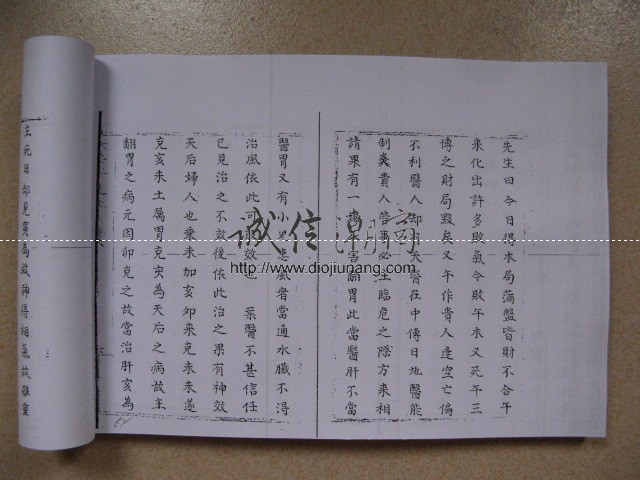 先生曰今日得木局滿盤皆財不合午
來化出許多敗氣令敗午木又死午三
傳之財局毀矣又午作貴人產空亡偏
不利醫人却有天醫在中傳日地醫能
制炎貴人管事必主臨危之際方來相
請果有一 害翻胃此當醫肝不當
醫胃又有小 應風者當通水臟不得
治風依此可 效也 葉醫不甚信任
已見治之不效後依此治之果有神效
天后婦人也乘未加亥卯來克未未遂
克亥未土屬胃克亥為天后之病故主
翻胃之病元因卯克之故當治肝亥為
主死日却見寅為故神得相氣故雖重
诚信潮商
http://www.diojiunang.com